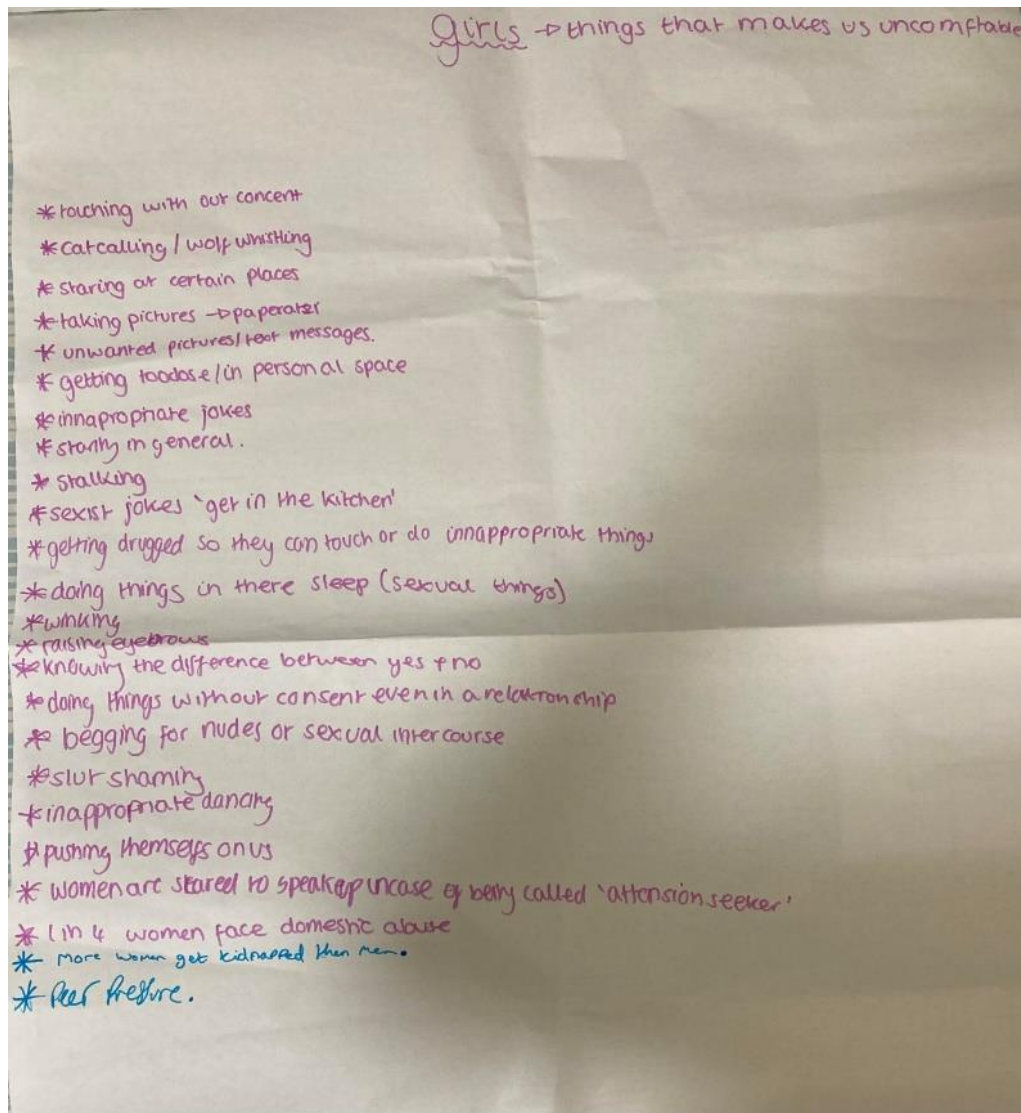 girls → things that makes us uncomftable
* touching with out concent
* catcalling / wolf whistling
* staring at certain places
* taking pictures →
* unwanted pictures/text messages.
* getting tooclose/in personal space
* innapropriate jokes
* in general.
* stalking
* sexist jokes 'get in the kitchen'
* getting drugged so they can touch or do innappropriate things
* doing things in there sleep (sexual things)
* winking
* raising eyebrows
* knowing the difference between yes + no
* doing things without consent even in a relationship
* begging for nudes or sexual intercourse
* slut shaming
* inappropriate dancing
* pushing themselfs on us
* women are scared to speak up incase of being called 'attension seeker'
* 1 in 4 women face domestic abuse
* More women get kidnapped then men.
* Peer Pressure.